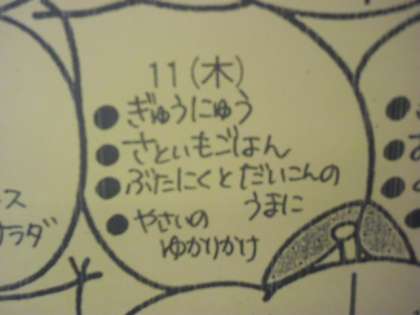 11(木)
●ぎゅうにゅう
●さといもごはん
●ぶたにくとだいこんの
うまに
●やさいの
ゆかりかけ
ース
サラダ